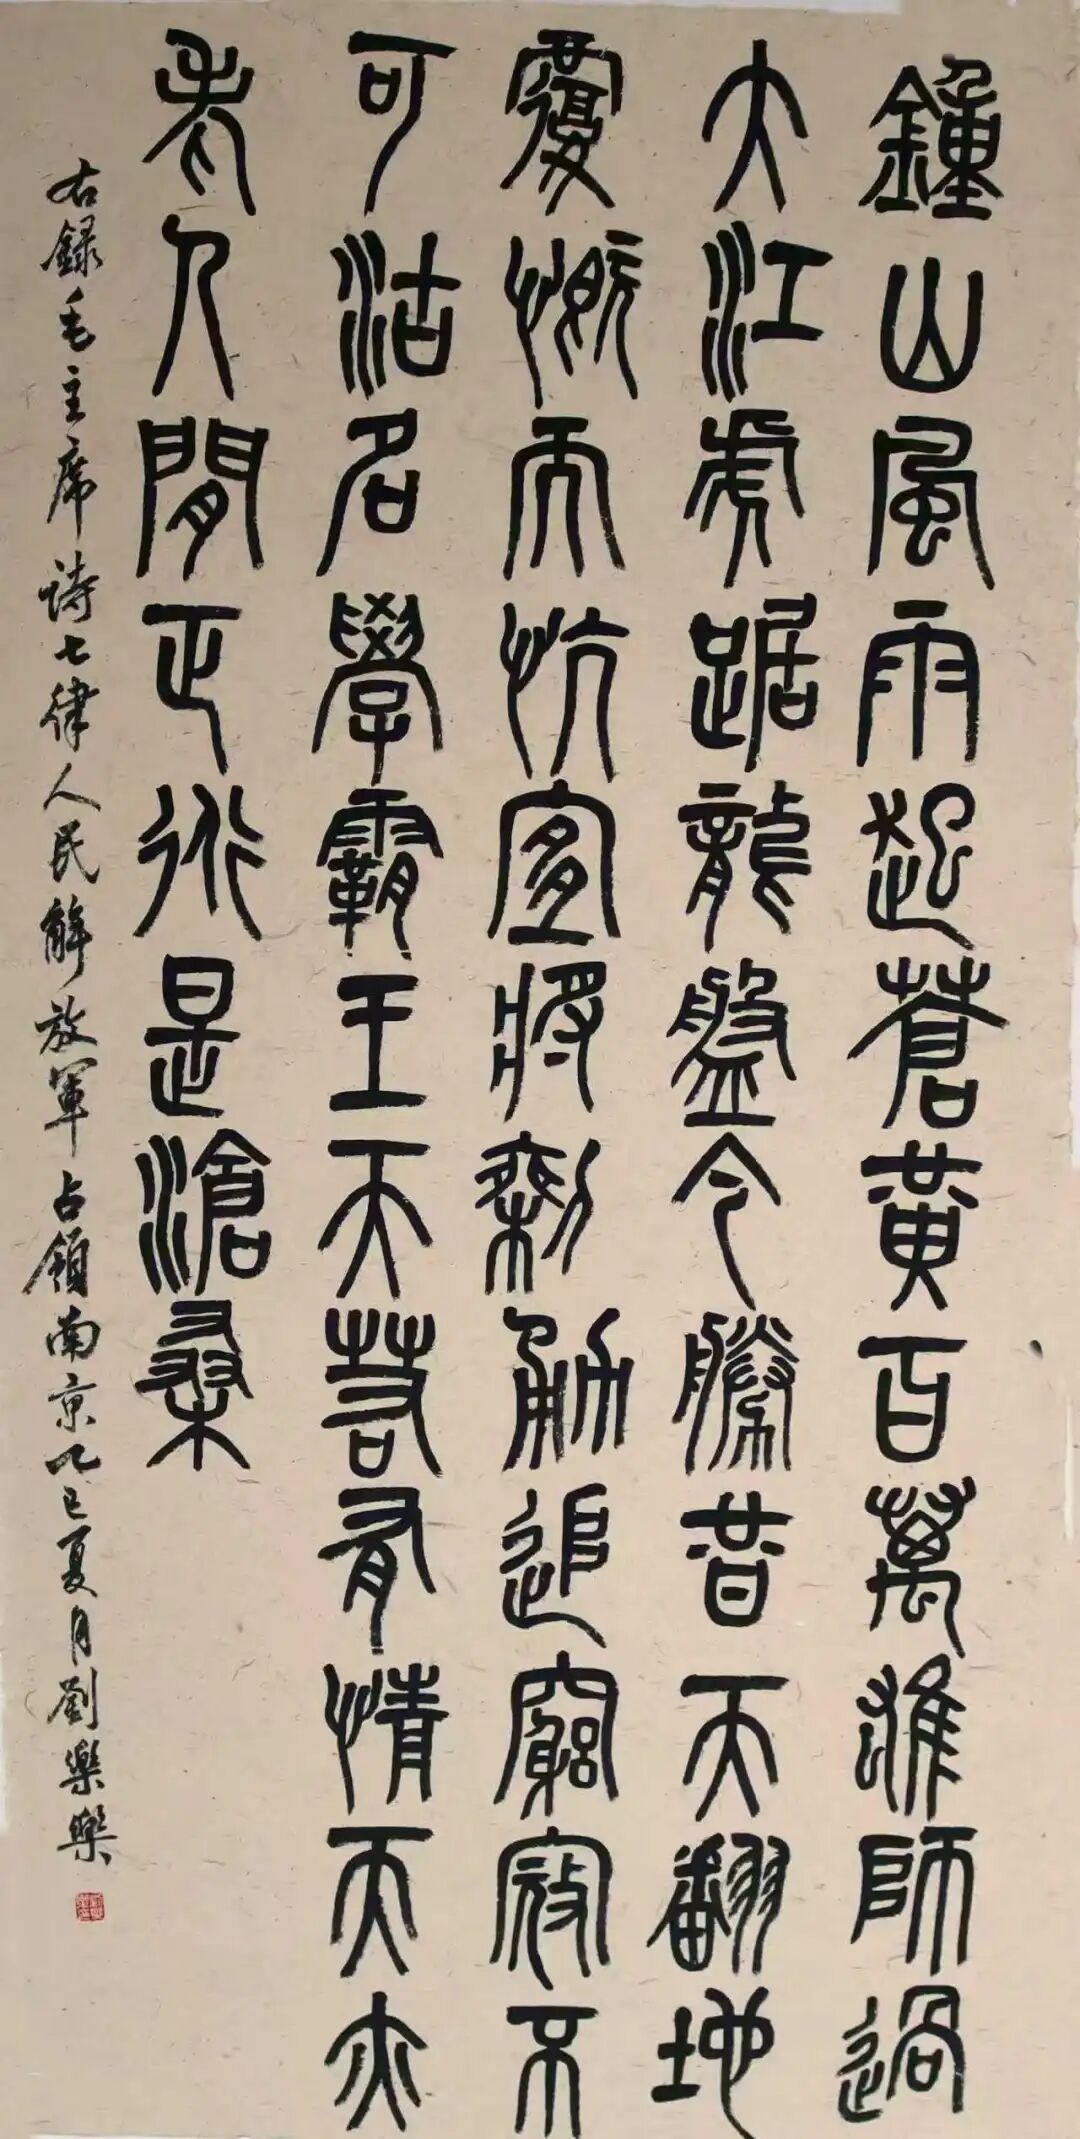 鐘山風雨起蒼黃百萬雄師過
大江虎踞龍盤今勝昔天翻地
覆慨而忼宜將剩勇追窮寇不
可沽名學霸王天若有情天亦
老人間正道是滄桑
右録毛主席詩七律人民解放軍占領南京乙巳夏月劉樂樂